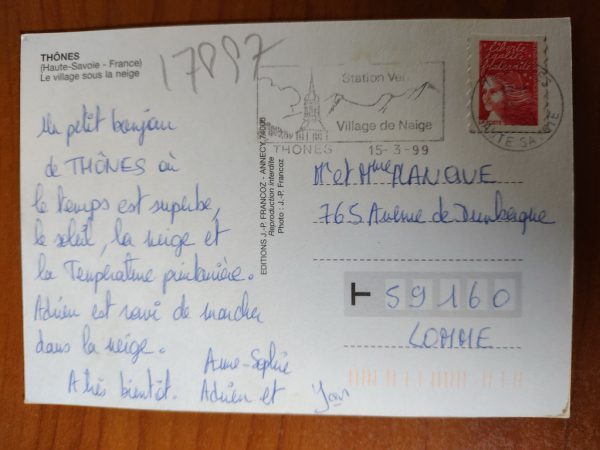 THÔNES
(Haute-Savoie - France)
Le village sous la neige
17897
Un petit bonjour
de THÔNES où
le temps est superbe,
le soleil, la neige et
la Température printanière.
Adrien est ravi de marcher
dans la neige.
Anne-Sophie
A très bientôt. Adrien et Yan
EDITIONS J.-P. FRANCOZ - ANNECY 74000
Reproduction interdite
Photo : J.-P. Francoz
Station Ver
Village de Neige
THONES 15-3-99
Liberté
égalité
fraternité
Mr et Mme PLANQUE
765 Avenue de Dunkerque
59160
LOMME